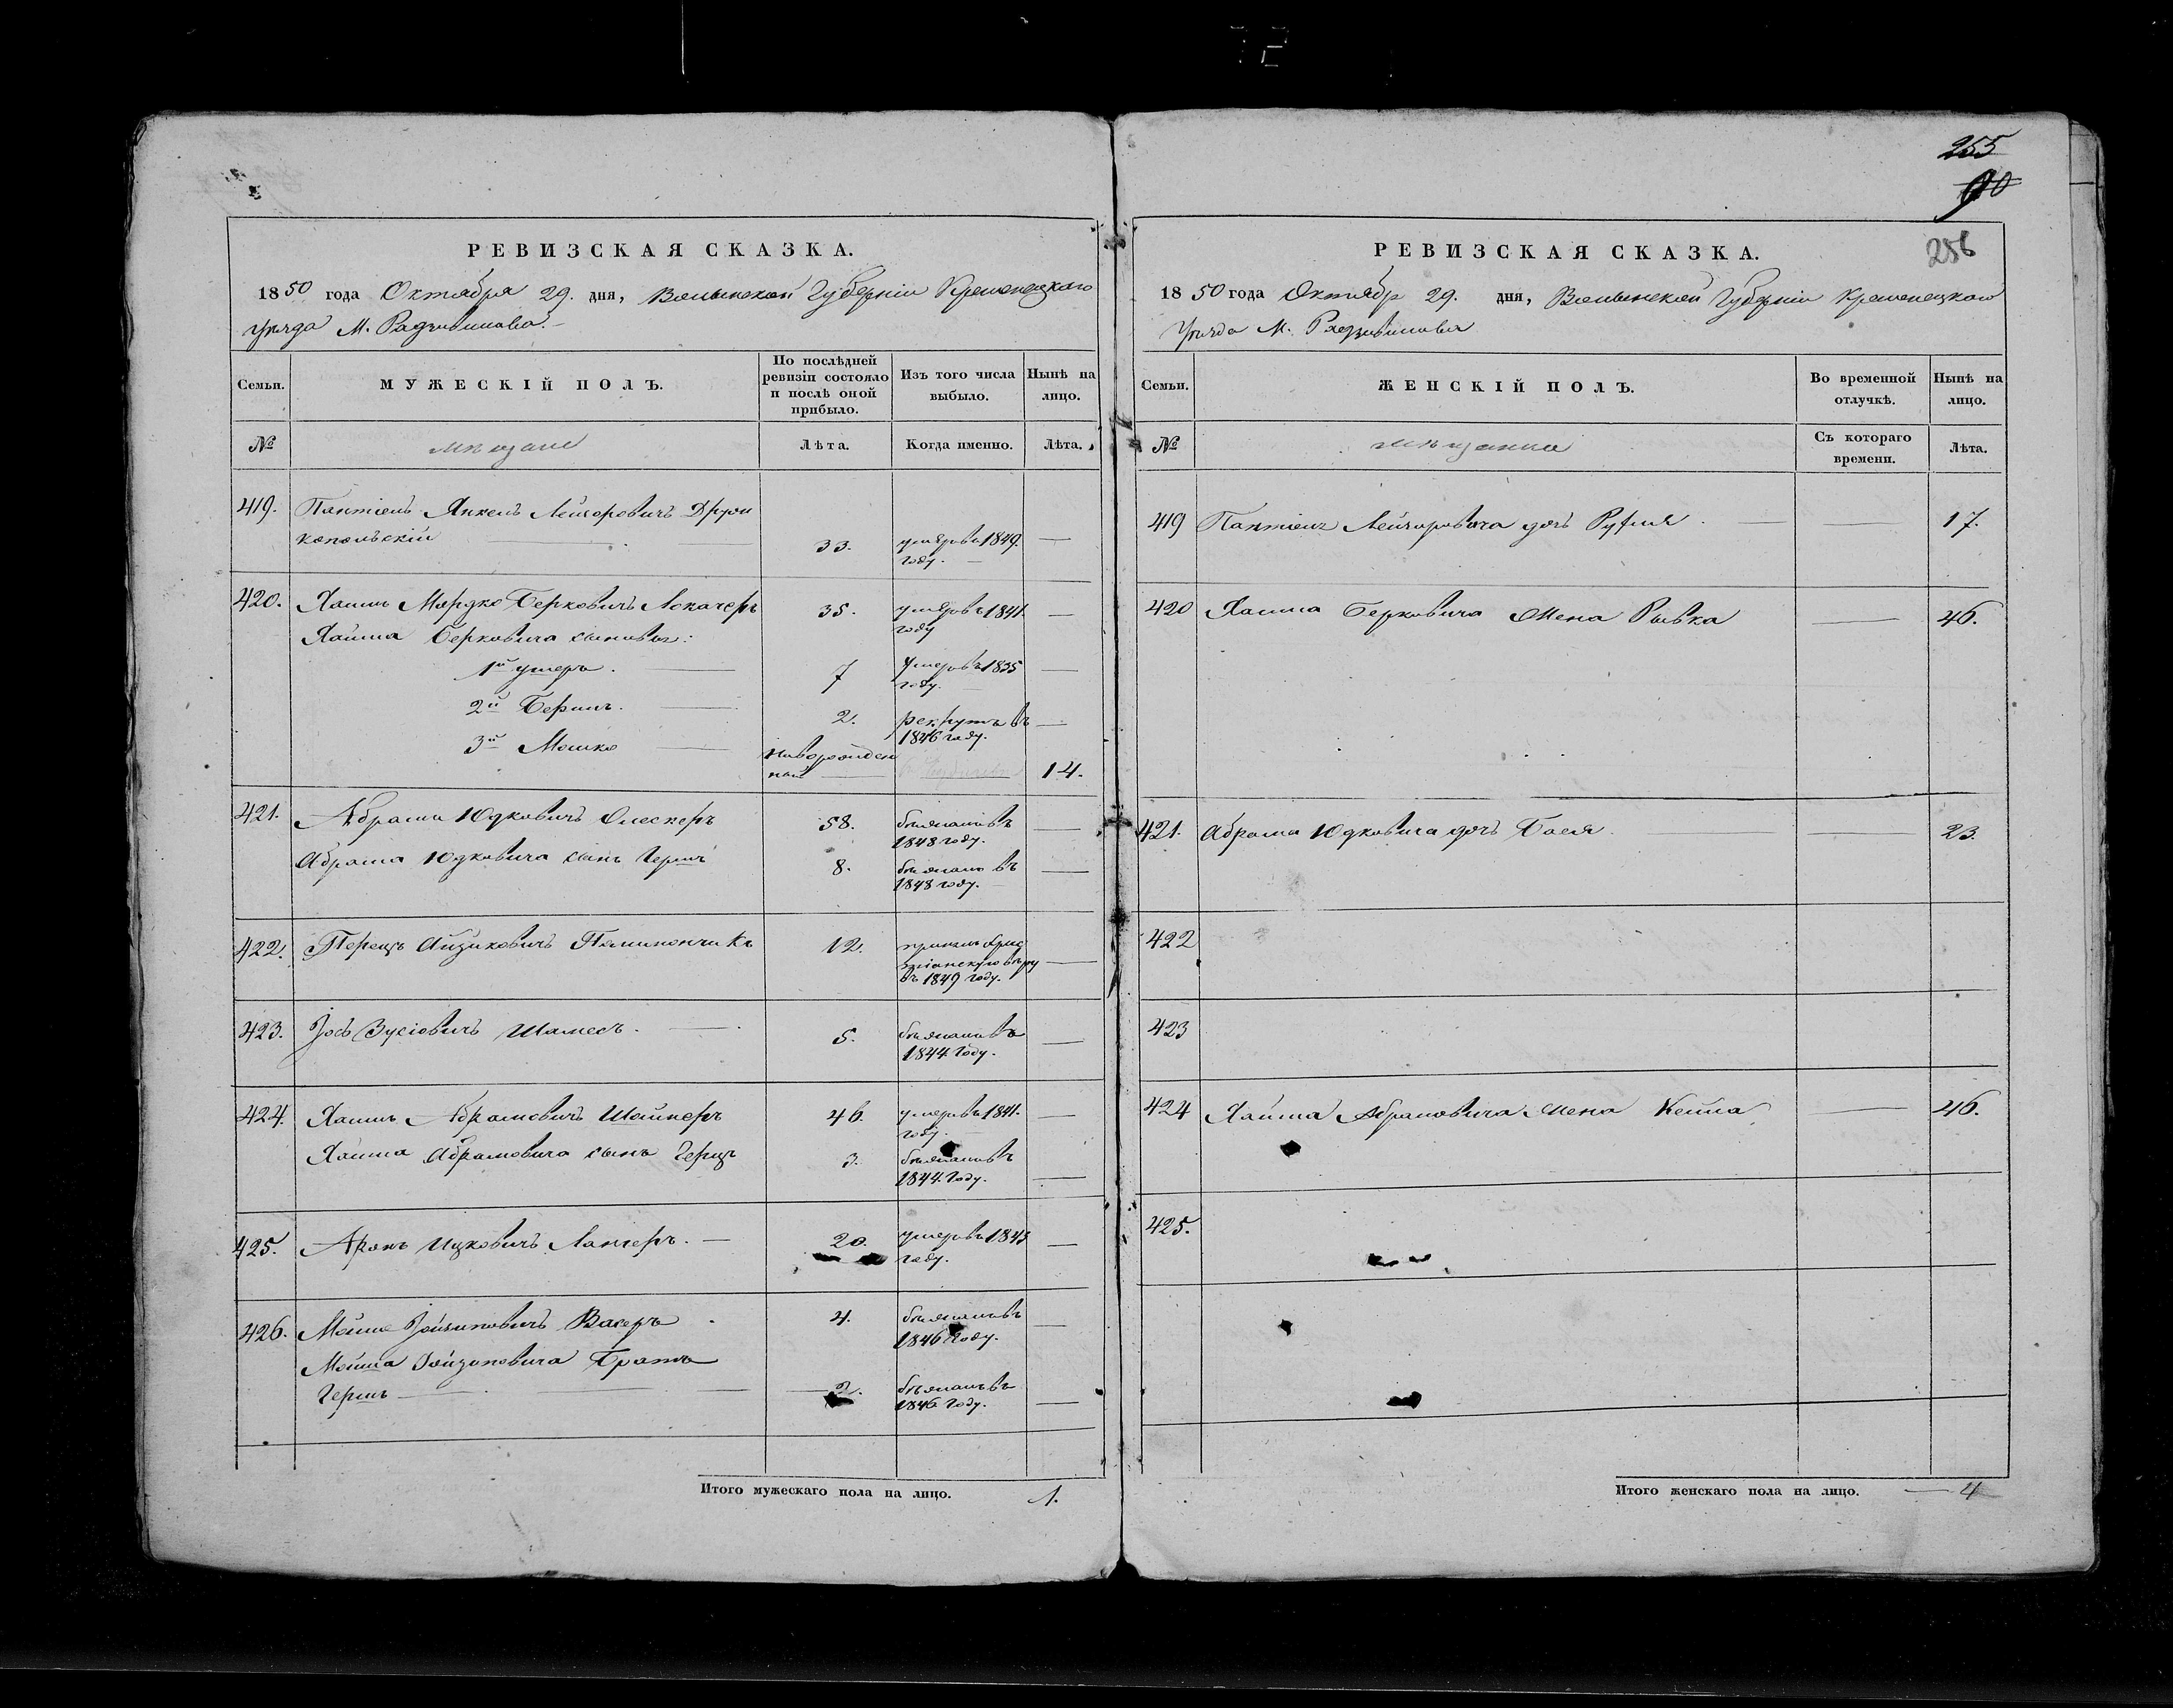 255
90
256
РЕВИЗСКАЯ СКАЗКА.
1850 года Октября 29. дня, Волынской Губерніи Кременецкаго
уѣзда М. Радзивилова.
Семьи.
МУЖЕСКІЙ ПОЛЪ.
По послѣдней ревизіи состояло и послѣ оной прибыло.
Изъ того числа выбыло.
Нынѣ на лицо.
№
мѣщане
Лѣта.
Когда именно.
Лѣта.
419. Пантіель Янкель Лейзоровичъ Друж
копольскій 33. умеръ въ 1849.
году.
420. Хаимъ Мордко Берковичъ Локачеръ 35. умеръ въ 1841.
году
Хаима Берковича сыновья:
1й умеръ. 7 умеръ въ 1835
году.
2й Беришъ. 2. рекрутъ въ
1846 году.
3й Мошко Новорожден
ный 14.
421. Абрамъ Юдковичъ Олескеръ 58. бѣжалъ въ
1848 году.
Абрама Юдковича сынъ Гершъ 8. бѣжалъ въ
1848 году.
422. Перецъ Айзиковичъ 12. принялъ Хрис
тіанскую вѣру
въ 1849 году.
423. Іось Зусіовичъ Шамесъ. 5. бѣжалъ въ
1844 году.
424. Хаимъ Абрамовичъ Шойнеръ 46. умеръ въ 1841.
году.
Хаима Абрамовича сынъ Герцъ 3. бѣжалъ въ
1844 году.
425. Аронъ Ицковичъ Лангеръ. 20. умеръ въ 1843
году.
426. Мошко Вакеръ 4. бѣжалъ въ
1846 году.
братъ
Гершъ 2. бѣжалъ въ
1846 году.
Итого мужескаго пола на лицо. 1.
РЕВИЗСКАЯ СКАЗКА.
1850 года Октябр 29. дня, Волынской Губерніи Кременецкаго
Уѣзда М. Радзивилова
Семьи.
ЖЕНСКІЙ ПОЛЪ.
Во временной отлучкѣ.
Нынѣ на лицо.
№
мѣщанки
Съ котораго времени.
Лѣта.
419 Лейзоровича дочь Руфля 17.
420 Хаима Берковича жена Рывка 46.
421. Абрама Юдковича дочь Бася. 23.
422
423
424 Хаима Абрамовича жена Кейла 46.
425.
Итого женскаго пола на лицо. 4